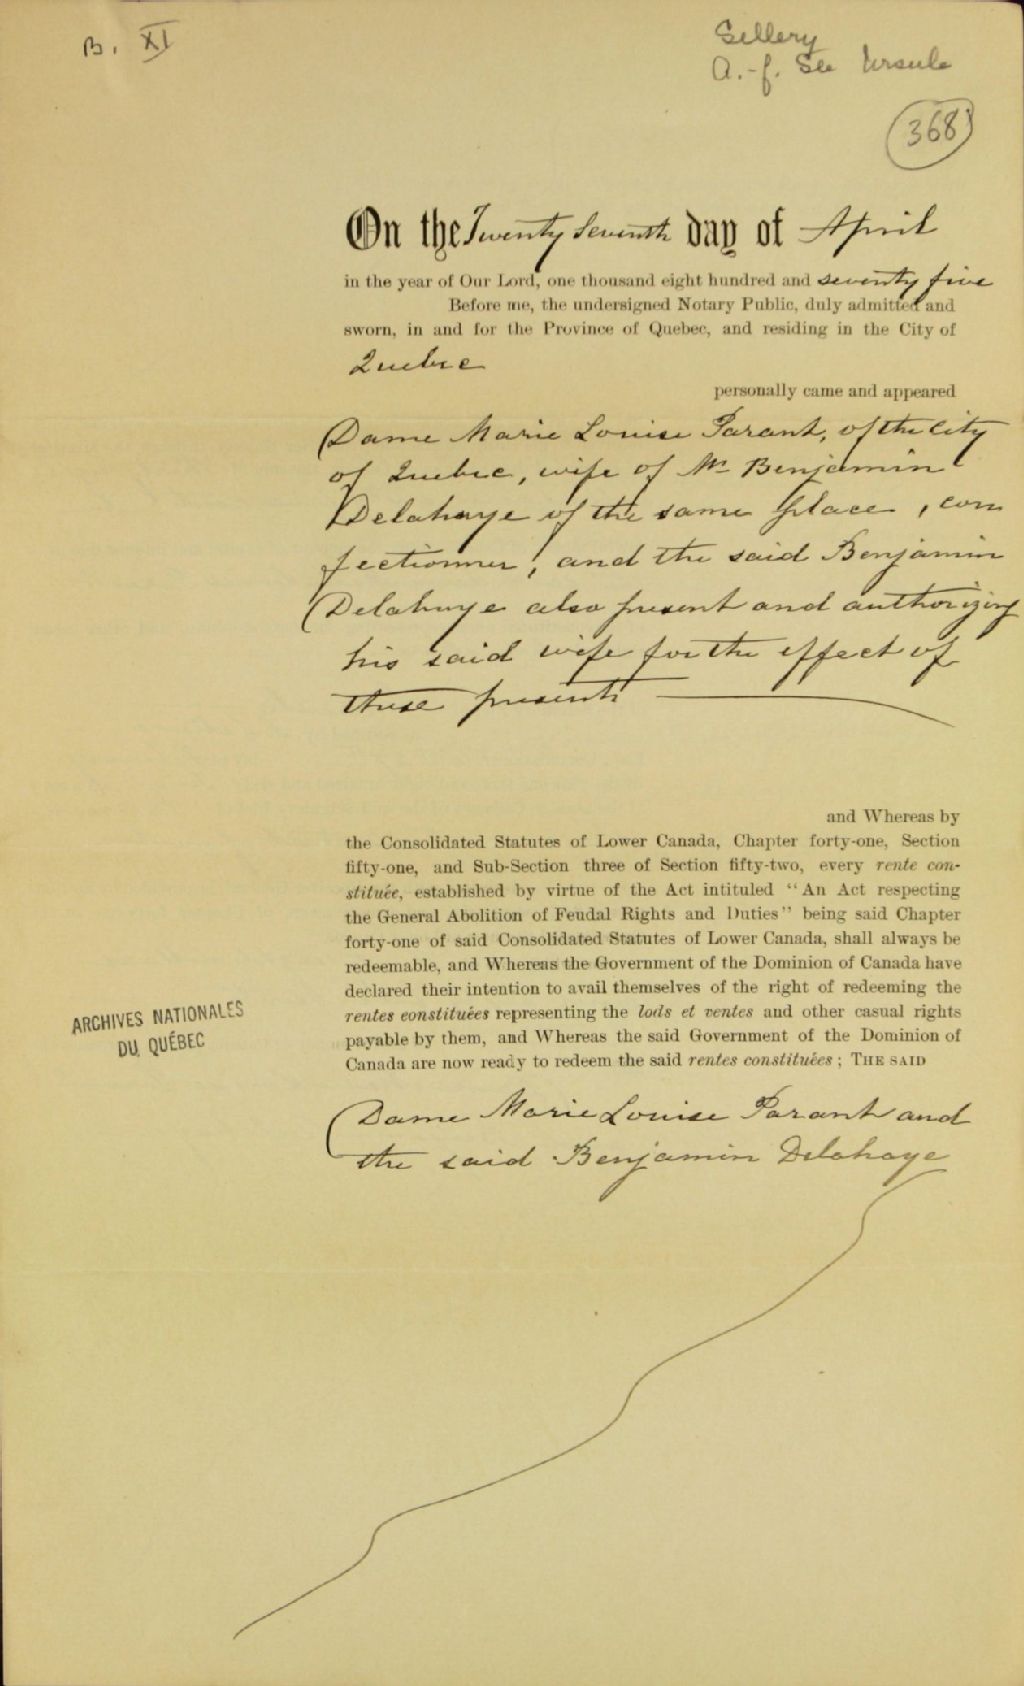 B. XI
Sillery
A.-f. Ste Ursule
368
On the Twenty Seventh day of April
in the year of Our Lord, one thousand eight hundred and seventy five
Before me, the undersigned Notary Public, duly admitted and
sworn, in and for the Province of Quebec, and residing in the City of
Quebec
personally came and appeared
Dame Marie Louise Parant, of the City
of Quebec, wife of Mr Benjamin
Delahaye of the same place, con
fectionner, and the said Benjamin
Delahaye also present and authorizing
his said wife for the effect of
these presents
and Whereas by
the Consolidated Statutes of Lower Canada, Chapter forty-one, Section
fifty-one, and Sub-Section three of Section fifty-two, every rente con-
stituée, established by virtue of the Act intituled "An Act respecting
the General Abolition of Feudal Rights and Duties" being said Chapter
forty-one of said Consolidated Statutes of Lower Canada, shall always be
redeemable, and Whereas the Government of the Dominion of Canada have
declared their intention to avail themselves of the right of redeeming the
rentes constituées representing the lods et ventes and other casual rights
payable by them, and Whereas the said Government of the Dominion of
Canada are now ready to redeem the said rentes constituées; THE SAID
ARCHIVES NATIONALES
DU QUÉBEC
Dame Marie Louise Parant and
the said Benjamin Delahaye